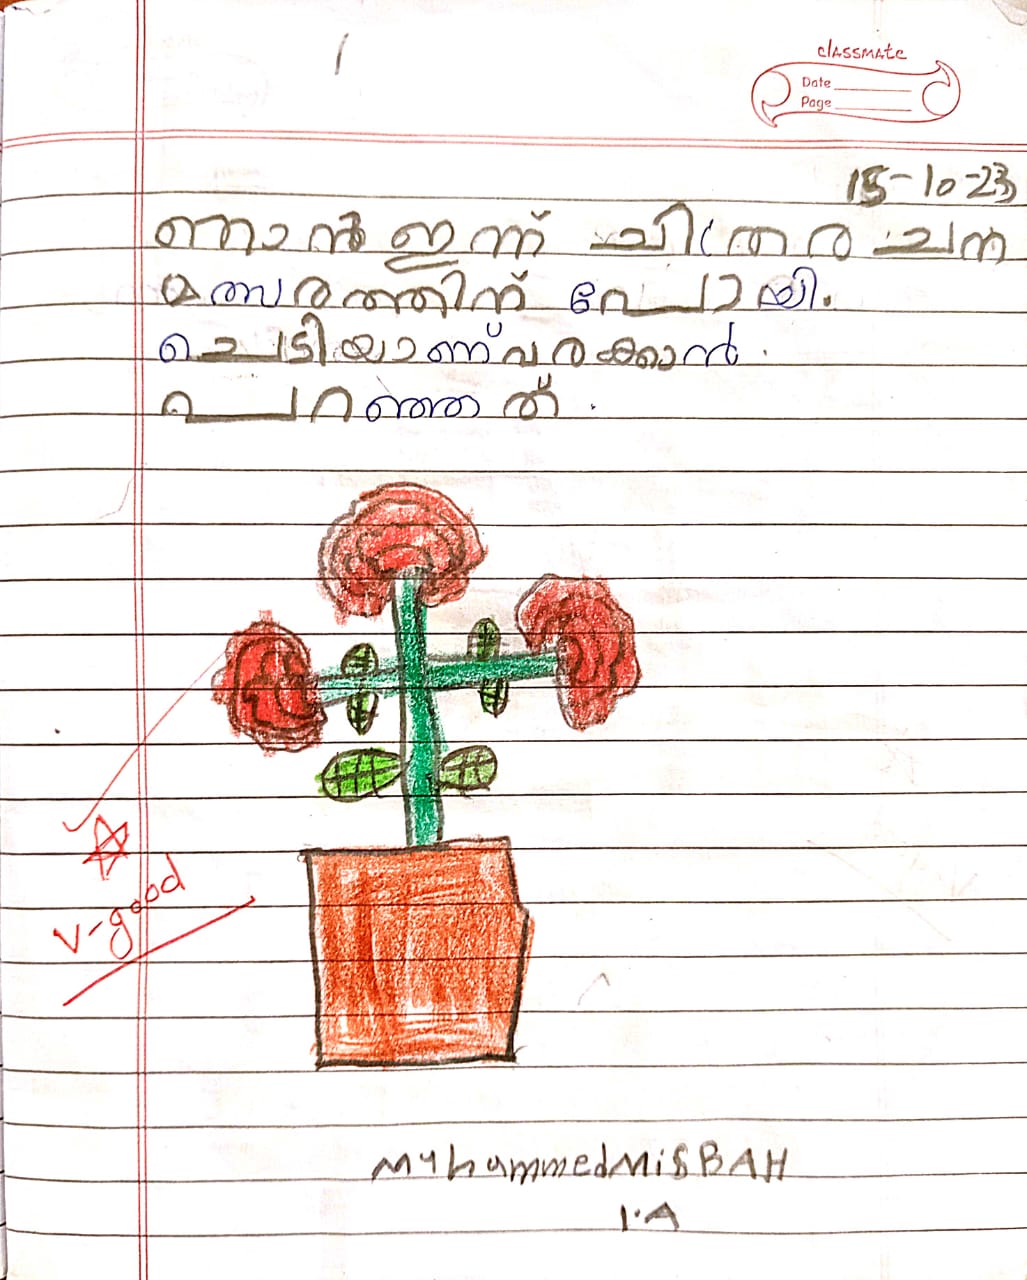 classmate
Date
Page
15-10-23
ഞാൻ ഇന്ന് ചിത്രരചന
മത്സരത്തിന് പോയി.
ചെടിയാണ് വരക്കാൻ.
പെറഞ്ഞത്.
V-good
Muhammed MiSBAH
1.A